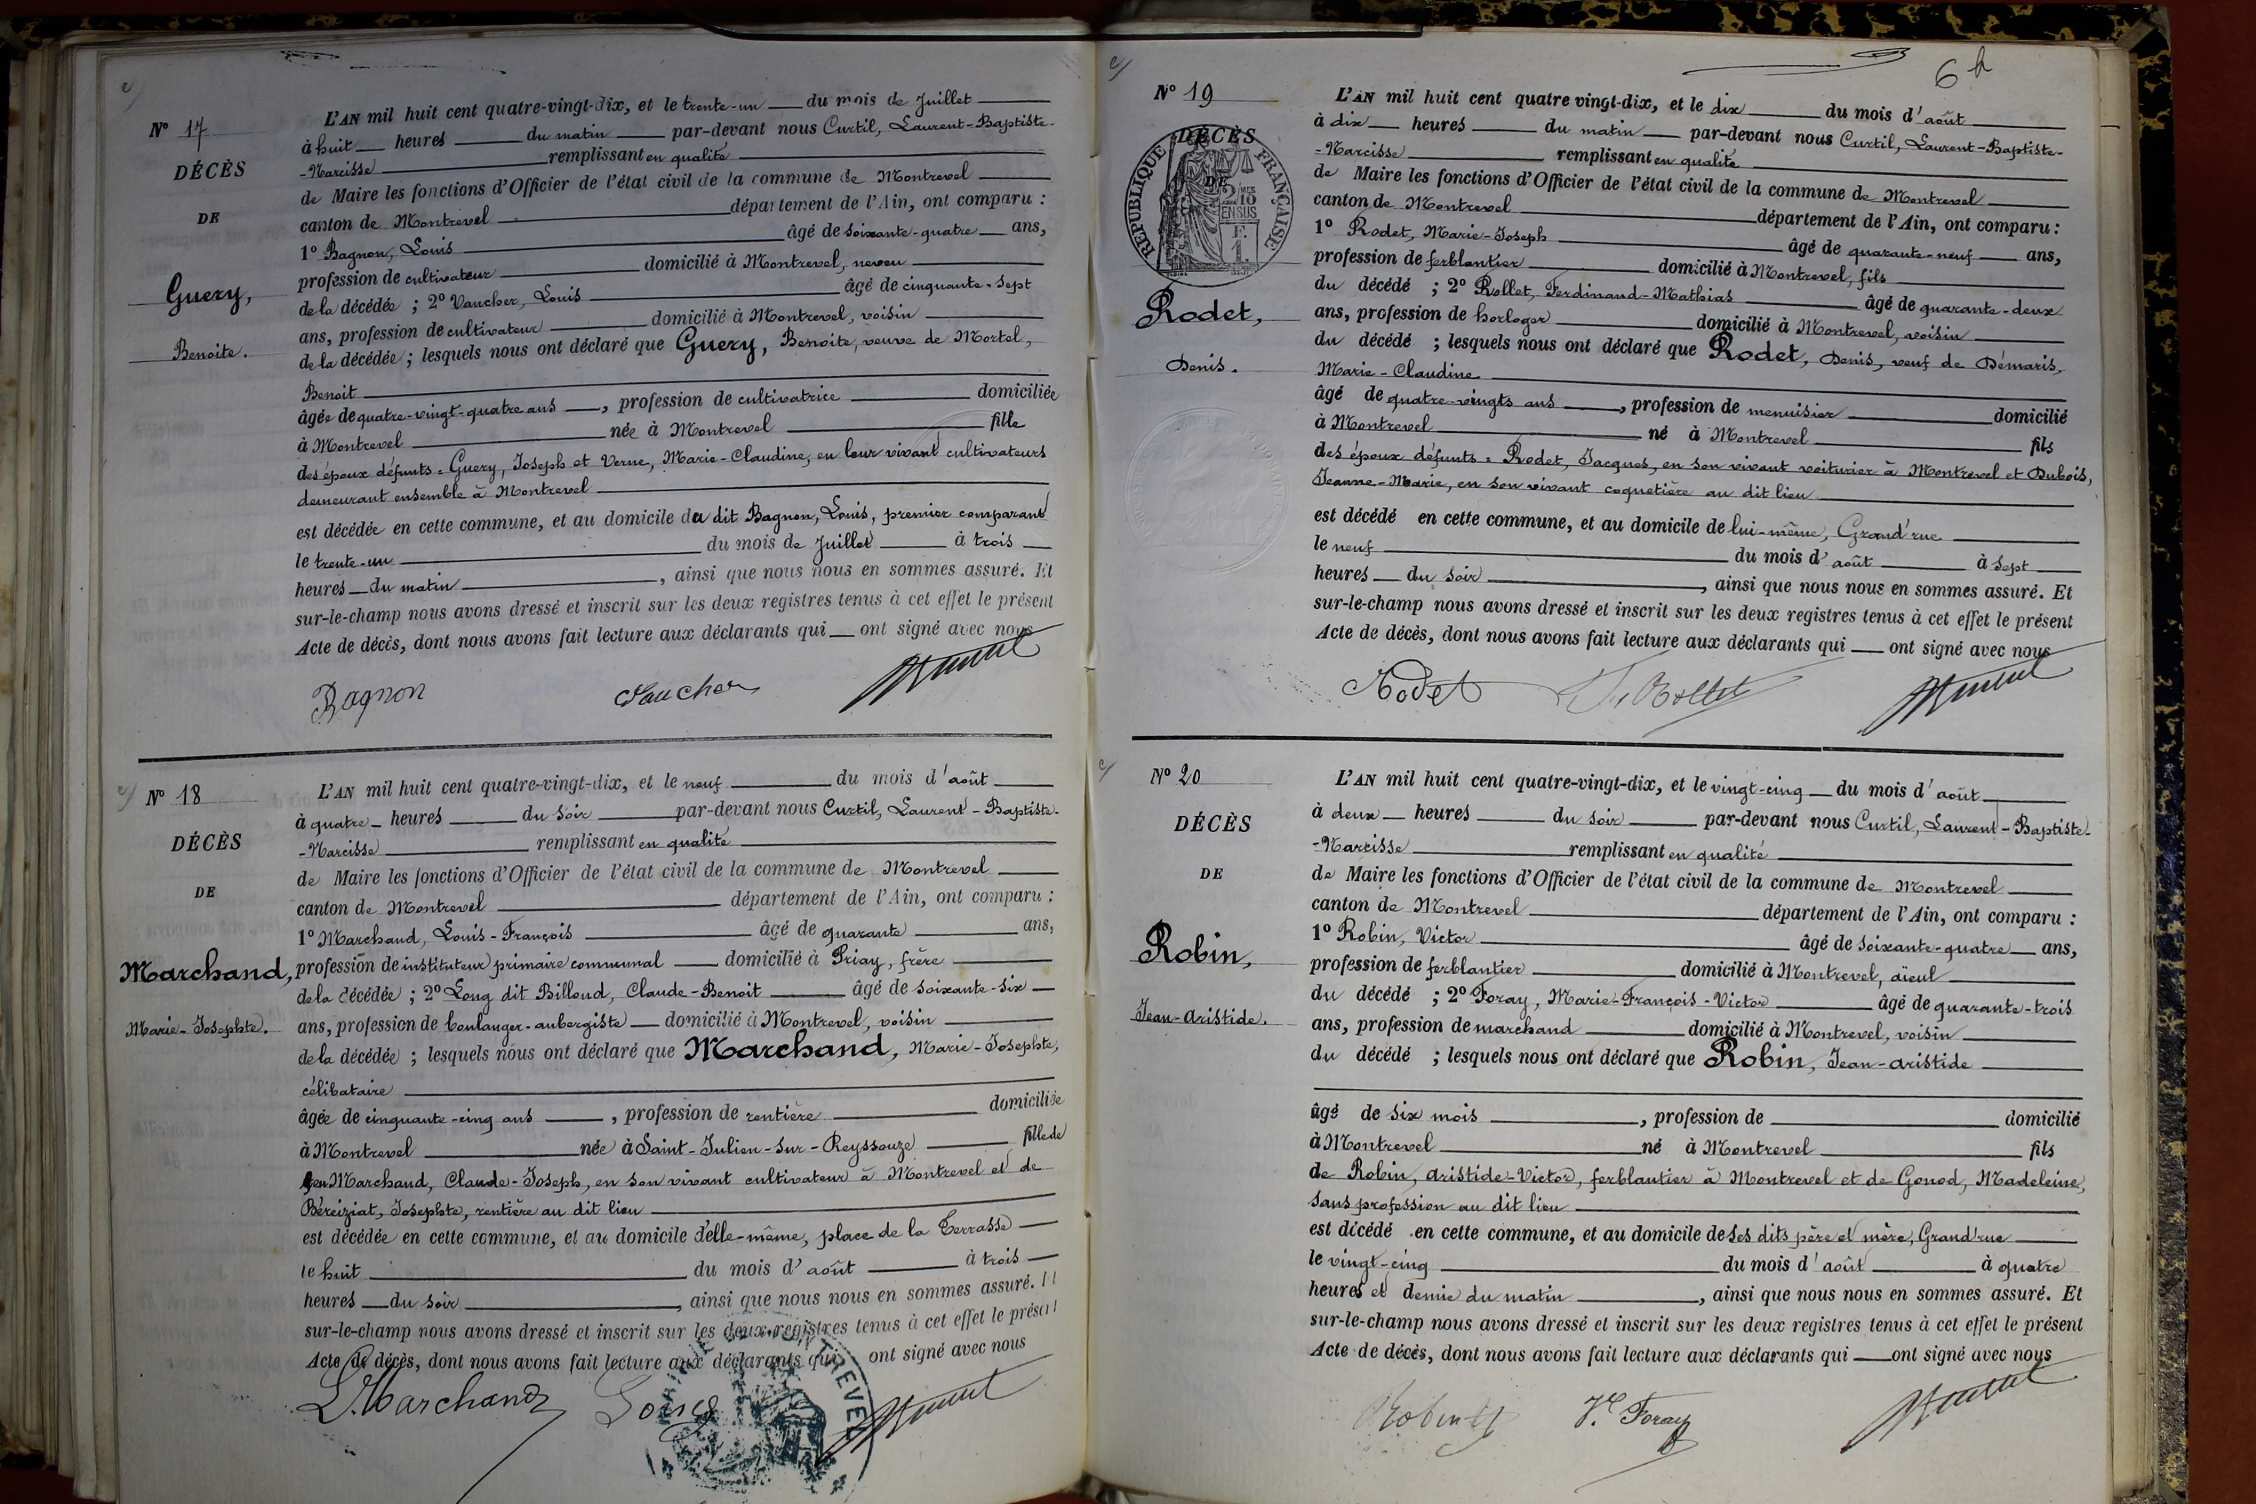 Nº 17
DÉCÈS
DE
Guery,
Benoite.
L'AN mil huit cent quatre-vingt-dix, et le trente-un du mois de Juillet
à huit heures du matin par-devant nous Curtil, Laurent-Baptiste-
-Narcisse remplissant en qualité
de Maire les fonctions d'Officier de l'état civil de la commune de Montrevel
canton de Montrevel département de l'Ain, ont comparu :
1º Bagnon, Louis âgé de soixante-quatre ans,
profession de cultivateur domicilié à Montrevel, neveu
de la décédée ; 2º Vaucher, Louis âgé de cinquante-sept
ans, profession de cultivateur domicilié à Montrevel, voisin
de la décédée ; lesquels nous ont déclaré que Guery, Benoite, veuve de Mortel,
Benoit
âgée de quatre-vingt-quatre ans , profession de cultivatrice domiciliée
à Montrevel née à Montrevel fille
des époux défunts = Guery, Joseph et Verne, Marie-Claudine, en leur vivant cultivateurs
demeurant ensemble à Montrevel
est décédée en cette commune, et au domicile du dit Bagnon, Louis, premier comparant
le trente-un du mois de Juillet à trois
heures du matin , ainsi que nous nous en sommes assuré. Et
sur-le-champ nous avons dressé et inscrit sur les deux registres tenus à cet effet le présent
Acte de décès, dont nous avons fait lecture aux déclarants qui ont signé avec nous
Bagnon Vaucher
Nº 18
DÉCÈS
DE
Marchand,
Marie-Josephte.
L'AN mil huit cent quatre-vingt-dix, et le neuf du mois d'août
à quatre heures du soir par-devant nous Curtil, Laurent-Baptiste-
-Narcisse remplissant en qualité
de Maire les fonctions d'Officier de l'état civil de la commune de Montrevel
canton de Montrevel département de l'Ain, ont comparu :
1º Marchand, Louis-François âgé de quarante ans,
profession de instituteur primaire communal domicilié à Priay, frère
de la décédée ; 2º Long dit Billoud, Claude-Benoit âgé de soixante-six
ans, profession de boulanger-aubergiste domicilié à Montrevel, voisin
de la décédée ; lesquels nous ont déclaré que Marchand, Marie-Josephte,
célibataire
âgée de cinquante-cinq ans , profession de rentière domiciliée
à Montrevel née à Saint-Julien-sur-Reyssouze fille de
feu Marchand, Claude-Joseph, en son vivant cultivateur à Montrevel et de
Béreiziat, Josephte, rentière au dit lieu
est décédée en cette commune, et au domicile d'elle-même, place de la Terrasse
le huit du mois d'août à trois
heures du soir , ainsi que nous nous en sommes assuré. Et
sur-le-champ nous avons dressé et inscrit sur les deux registres tenus à cet effet le présent
Acte de décès, dont nous avons fait lecture aux déclarants qui ont signé avec nous
L. Marchand Long
6
Nº 19
DÉCÈS
DE
RÉPUBLIQUE FRANÇAISE
Rodet,
Denis.
L'AN mil huit cent quatre vingt-dix, et le dix du mois d'août
à dix heures du matin par-devant nous Curtil, Laurent-Baptiste-
-Narcisse remplissant en qualité
de Maire les fonctions d'Officier de l'état civil de la commune de Montrevel
canton de Montrevel département de l'Ain, ont comparu :
1º Rodet, Marie-Joseph âgé de quarante-neuf ans,
profession de ferblantier domicilié à Montrevel, fils
du décédé ; 2º Rollet, Ferdinand-Mathias âgé de quarante-deux
ans, profession de horloger domicilié à Montrevel, voisin
du décédé ; lesquels nous ont déclaré que Rodet, Denis, veuf de Démaris,
Marie-Claudine
âgé de quatre-vingts ans , profession de menuisier domicilié
à Montrevel né à Montrevel fils
des époux défunts = Rodet, Jacques, en son vivant voiturier à Montrevel et Dubois,
Jeanne-Marie, en son vivant coquetière au dit lieu
est décédé en cette commune, et au domicile de lui-même, Grand'rue
le neuf du mois d'août à sept
heures du soir , ainsi que nous nous en sommes assuré. Et
sur-le-champ nous avons dressé et inscrit sur les deux registres tenus à cet effet le présent
Acte de décès, dont nous avons fait lecture aux déclarants qui ont signé avec nous
Rodet Rollet
Nº 20
DÉCÈS
DE
Robin,
Jean-Aristide.
L'AN mil huit cent quatre-vingt-dix, et le vingt-cinq du mois d'août
à deux heures du soir par-devant nous Curtil, Laurent-Baptiste-
-Narcisse remplissant en qualité
de Maire les fonctions d'Officier de l'état civil de la commune de Montrevel
canton de Montrevel département de l'Ain, ont comparu :
1º Robin, Victor âgé de soixante-quatre ans,
profession de ferblantier domicilié à Montrevel, aïeul
du décédé ; 2º Foray, Marie-François-Victor âgé de quarante-trois
ans, profession de marchand domicilié à Montrevel, voisin
du décédé ; lesquels nous ont déclaré que Robin, Jean-Aristide
âgé de six mois , profession de domicilié
à Montrevel né à Montrevel fils
de Robin, Aristide-Victor, ferblantier à Montrevel et de Gonod, Madeleine,
sans profession au dit lieu
est décédé en cette commune, et au domicile de ses dits père et mère, Grand'rue
le vingt-cinq du mois d'août à quatre
heures et demie du matin , ainsi que nous nous en sommes assuré. Et
sur-le-champ nous avons dressé et inscrit sur les deux registres tenus à cet effet le présent
Acte de décès, dont nous avons fait lecture aux déclarants qui ont signé avec nous
Robin Vr Foray